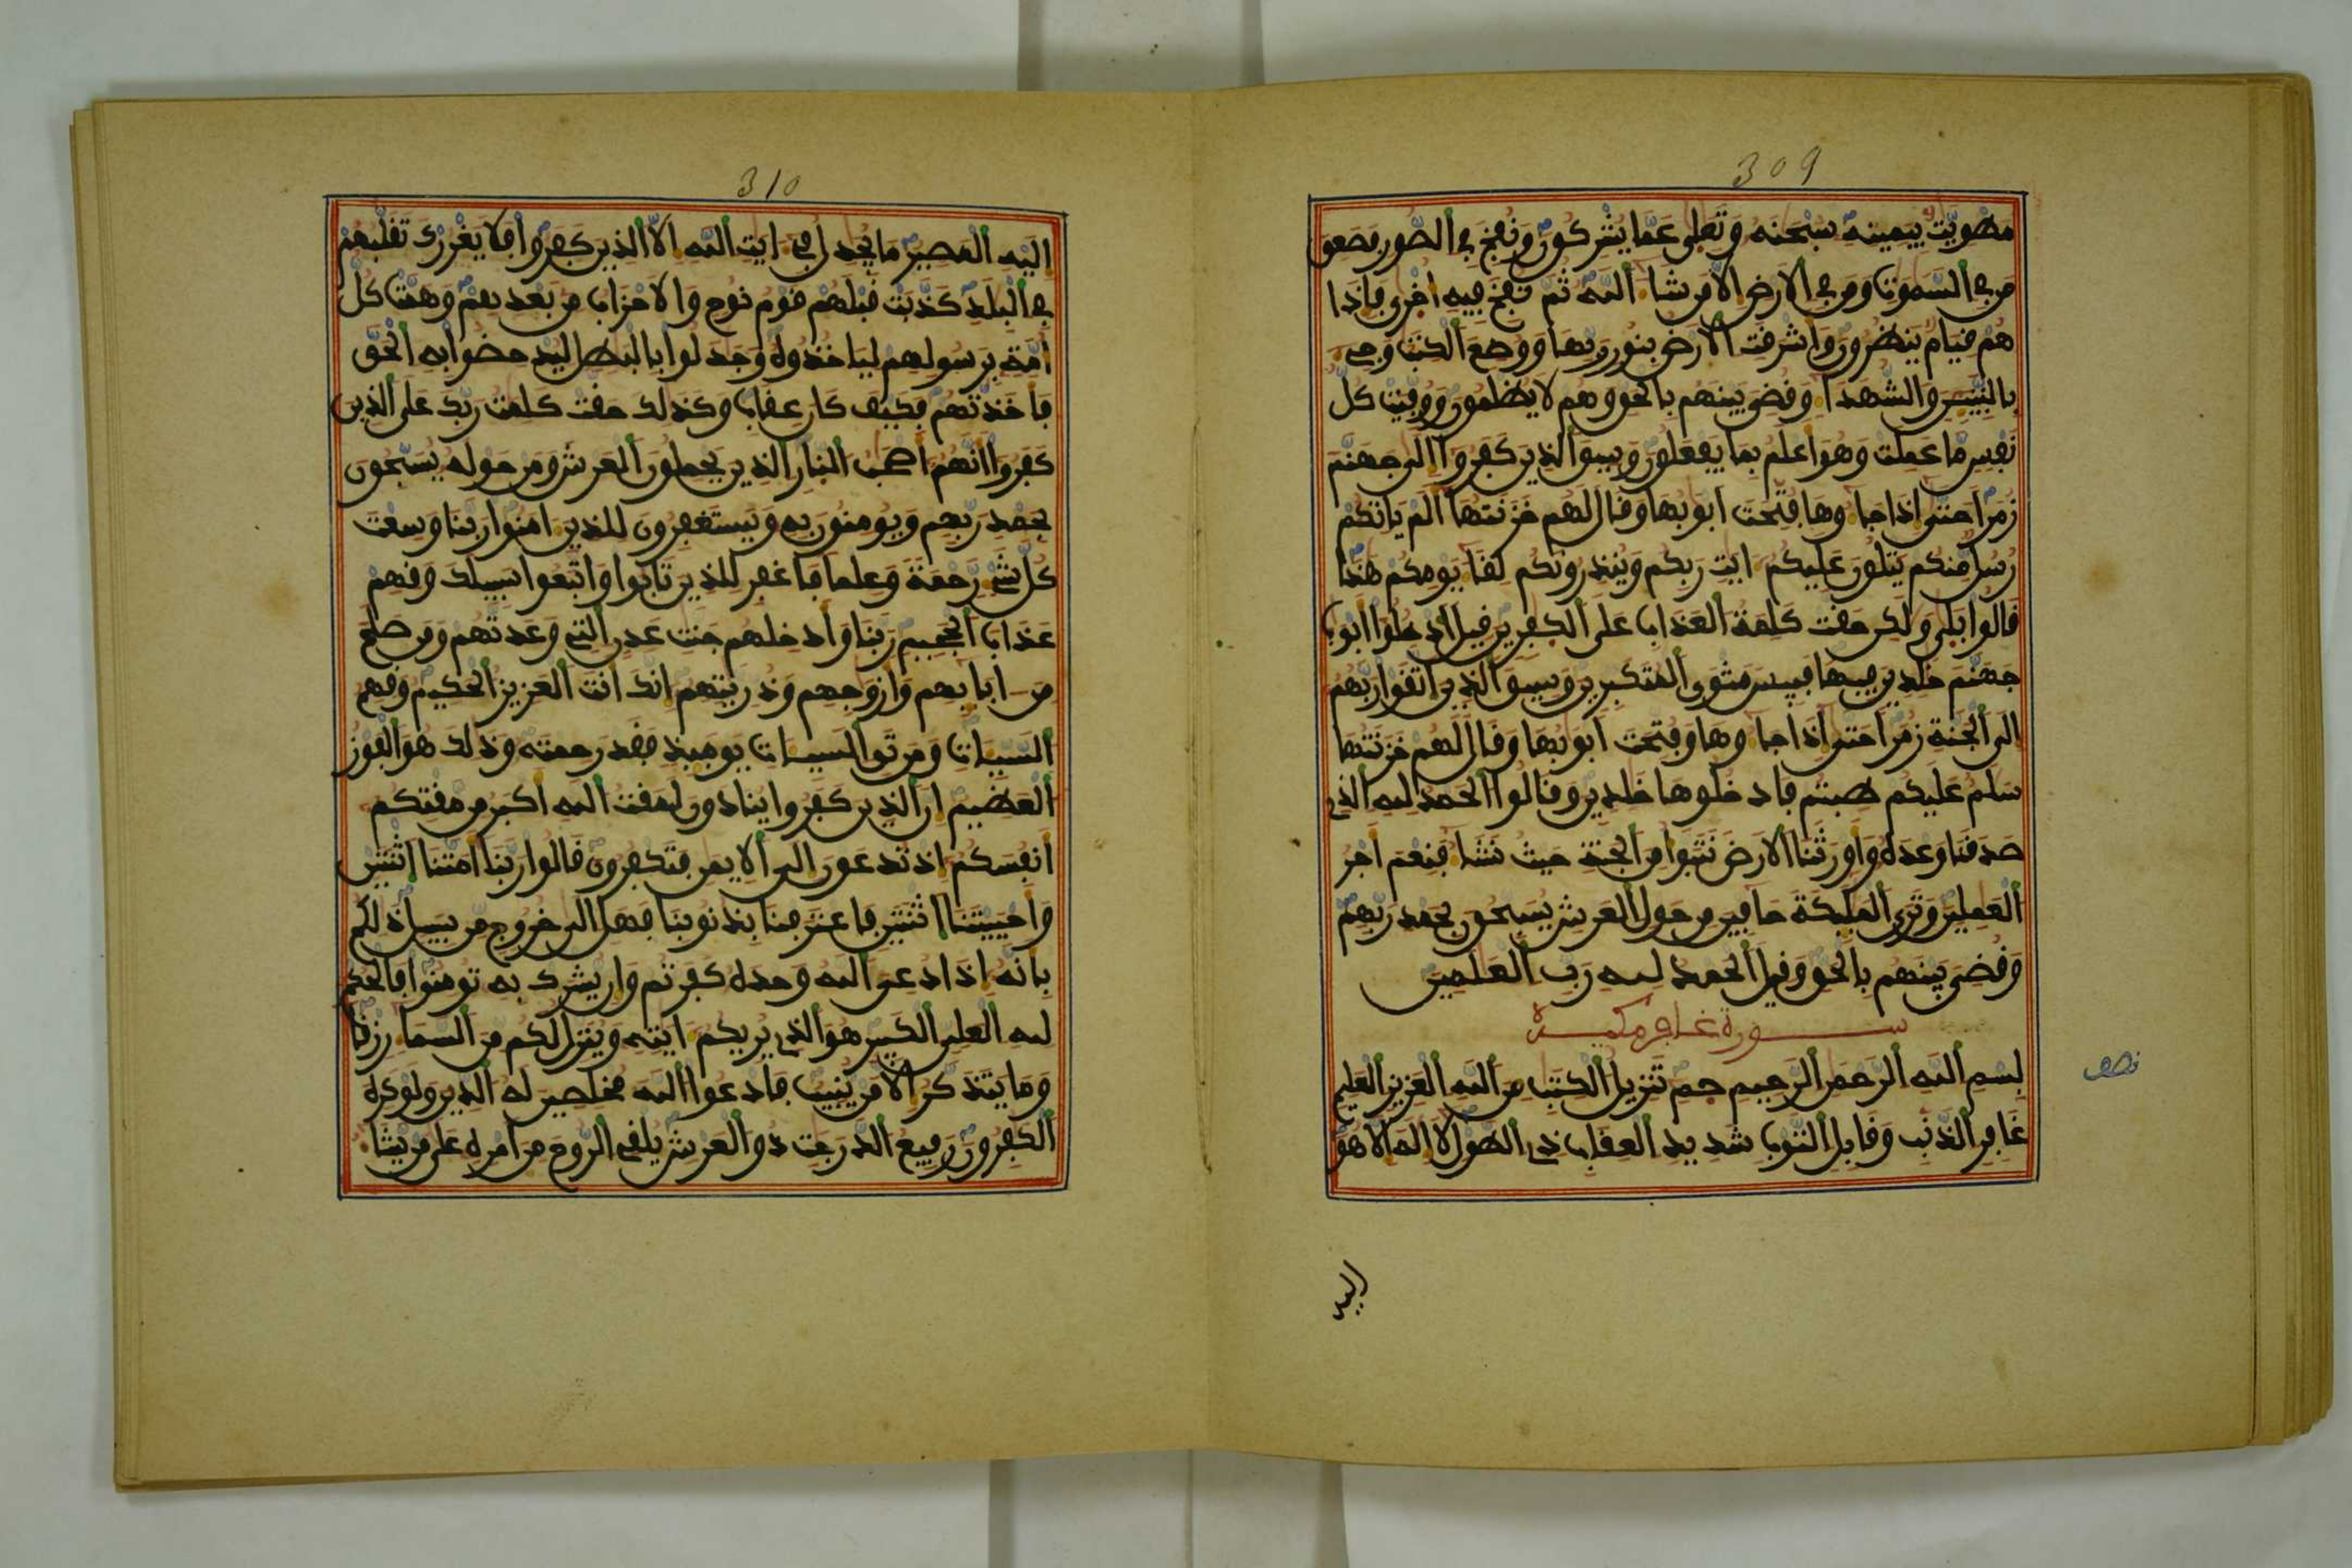 309
مطويت بيمينه سبحنه وتعلى عما يشركون ونفخ في الصور فصعق
من في السموت ومن في الارض الا من شا الله ثم نفخ فيه اخرى فاذا
هم قيام ينظرون واشرقت الارض بنور ربها ووضع الكتب وجيء
بالنبيين والشهدا وقضي بينهم بالحق وهم لا يظلمون ووفيت كل
نفس ما عملت وهو اعلم بما يفعلون وسيق الذين كفروا الى جهنم
زمرا حتى اذا جاوها فتحت ابوبها وقال لهم خزنتها الم ياتكم
رسل منكم يتلون عليكم ايت ربكم وينذرونكم لقا يومكم هذا
قالوا بلى ولكن حقت كلمة العذاب على الكفرين قيل ادخلوا ابوب
جهنم خلدين فيها فبيس مثوى المتكبرين وسيق الذين اتقوا ربهم
الى الجنة زمرا حتى اذا جاوها وفتحت ابوبها وقال لهم خزنتها
سلم عليكم طبتم فادخلوها خلدين وقالوا الحمد لله الذي
صدقنا وعده واورثنا الارض نتبوا من الجنة حيث نشا فنعم اجر
العملين وترى المليكة حافين من حول العرش يسبحون بحمد ربهم
وقضي بينهم بالحق وقيل الحمد لله رب العلمين
سورة غافر مكية
بسم الله الرحمن الرحيم حم تنزيل الكتب من الله العزيز العليم
غافر الذنب وقابل التوب شديد العقاب ذي الطول لا اله الا هو
نصف
اليه
310
اليه المصير ما يجدل في ايت الله الا الذين كفروا فلا يغررك تقلبهم
في البلد كذبت قبلهم قوم نوح والاحزاب من بعدهم وهمت كل
امة برسولهم لياخذوه وجدلوا بالبطل ليدحضوا به الحق
فاخذتهم فكيف كان عقاب وكذلك حقت كلمت ربك على الذين
كفروا انهم اصحب النار الذين يحملون العرش ومن حوله يسبحون
بحمد ربهم ويومنون به ويستغفرون للذين امنوا ربنا وسعت
كل شيء رحمة وعلما فاغفر للذين تابوا واتبعوا سبيلك وقهم
عذاب الجحيم ربنا وادخلهم جنت عدن التي وعدتهم ومن صلح
من ابايهم وازوجهم وذريتهم انك انت العزيز الحكيم وقهم
السيات ومن تق السيات يوميذ فقد رحمته وذلك هو الفوز
العظيم ان الذين كفروا ينادون لمقت الله اكبر من مقتكم
انفسكم اذ تدعون الى الايمن فتكفرون قالوا ربنا امتنا اثنتين
واحييتنا اثنتين فاعترفنا بذنوبنا فهل الى خروج من سبيل ذلكم
بانه اذا دعي الله وحده كفرتم وان يشرك به تومنوا فالحكم
لله العلي الكبير هو الذي يريكم ايته وينزل لكم من السما رزقا
وما يتذكر الا من ينيب فادعوا الله مخلصين له الدين ولو كره
الكفرون رفيع الدرجت ذو العرش يلقي الروح من امره على من يشا